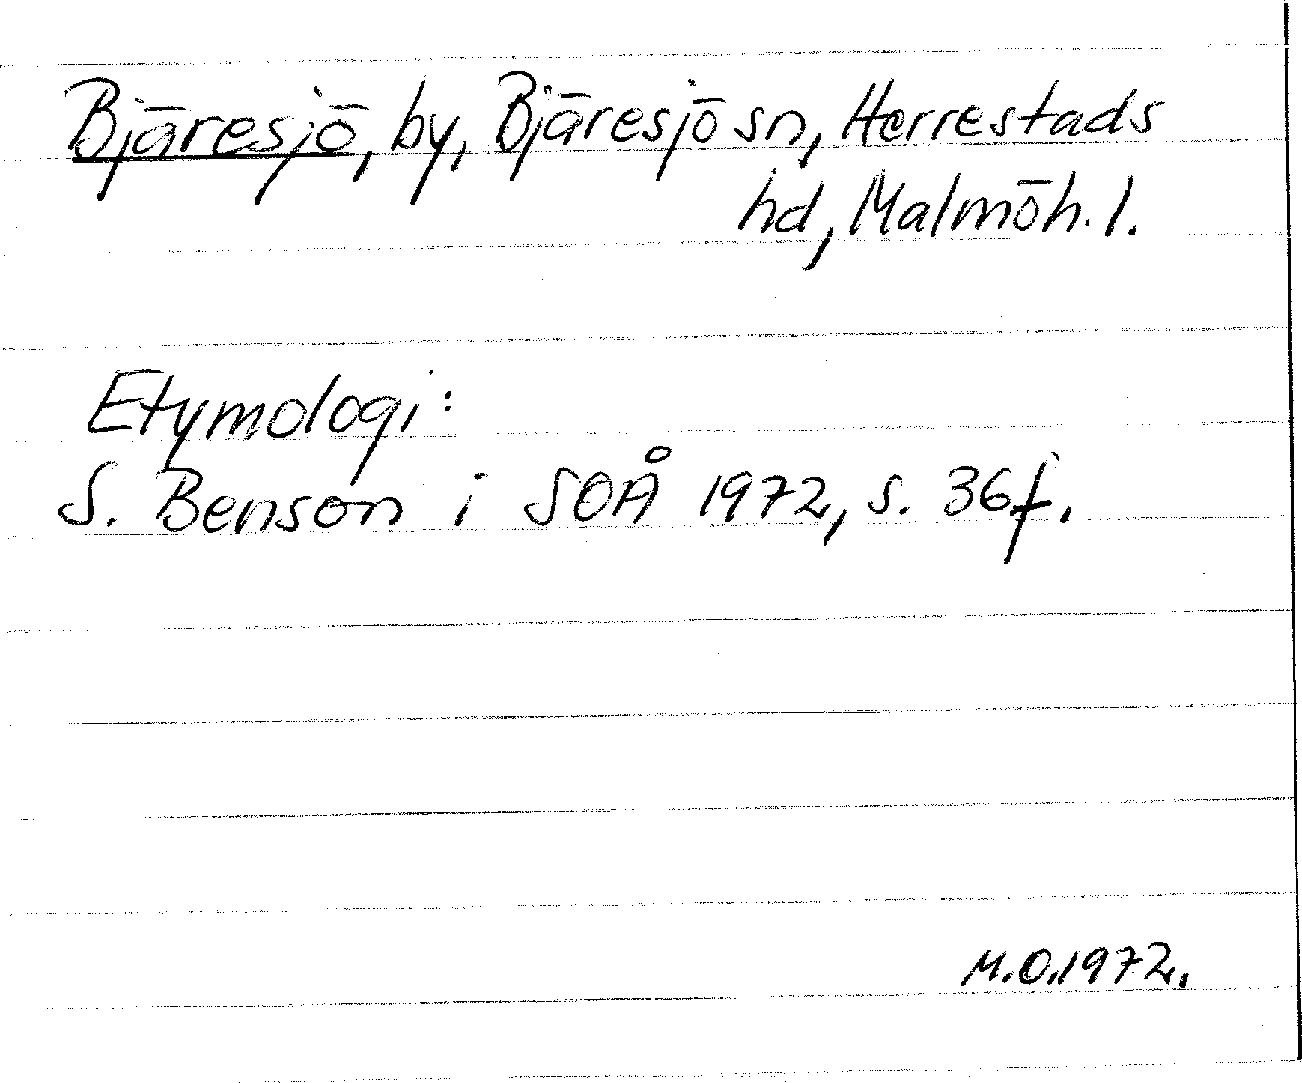 Bjäresjö, by, Bjäresjö sn, Herrestads
hd, Malmöh. l.
Etymologi:
S. Benson i SOÅ 1972, s. 36f.
M.O. 1972.